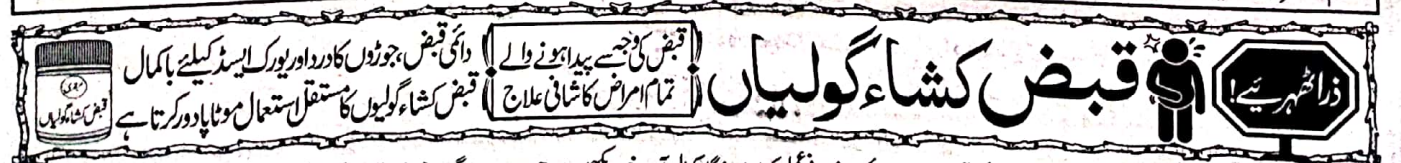 ذرا ٹھہریئے!
قبض کشاء گولیاں
قبض کی وجہ سے پیدا ہونے والے
تمام امراض کا شافی علاج
دائمی قبض، جوڑوں کا درد اور یورک ایسڈ کیلئے باکمال
قبض کشاء گولیوں کا مستقل استعمال موٹاپا دور کرتا ہے
قبض کشاء گولیاں